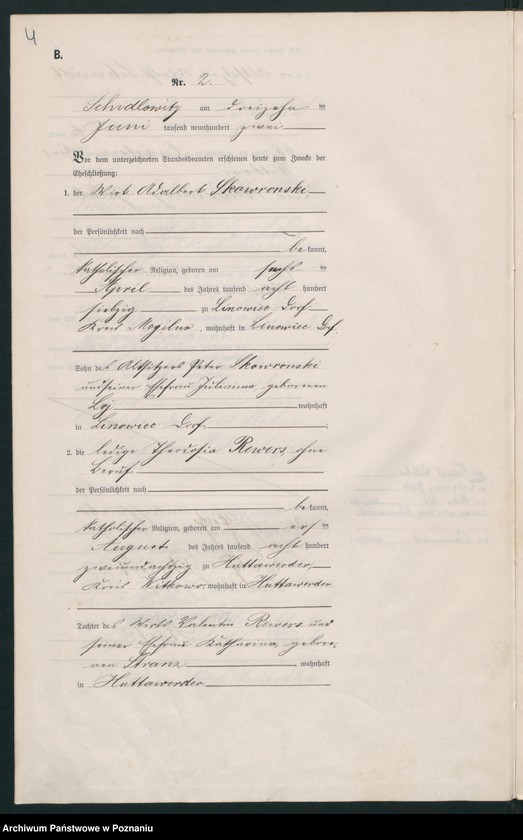 4
B.
Nr. 2.
Schidlowitz am dreizehn ten
Juni tausend neunhundert zwei
Vor dem unterzeichneten Standesbeamten erschienen heute zum Zwecke der
Eheschließung:
1. der Wirt Adalbert Skowronski
der Persönlichkeit nach
be kannt,
katholischer Religion, geboren am ten
April des Jahres tausend acht hundert
siebzig zu Linowiec Dorf
Kreis Mogilno, wohnhaft in Linowiec Dorf.
Sohn des Altsitzers Peter Skowronski
und seiner Ehefrau Julianna geborenen
Loj wohnhaft
in Linowiec Dorf
2. die ledige Theodosia Rewers, ohne
Beruf
der Persönlichkeit nach
be kannt,
katholischer Religion, geboren am ten
August des Jahres tausend acht hundert
zweiundachtzig zu Huttawerder,
Kreis Witkowo, wohnhaft in Huttawerder
Tochter des Wirts Valentin Rewers und
seiner Ehefrau Katharina, gebore-
nen Stranz, wohnhaft
in Huttawerder
Archiwum Państwowe w Poznaniu